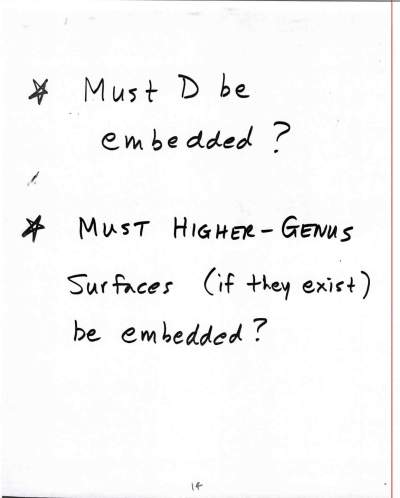 ☆ Must D be
embedded?
☆ MUST HIGHER-GENUS
Surfaces (if they exist)
be embedded?
14